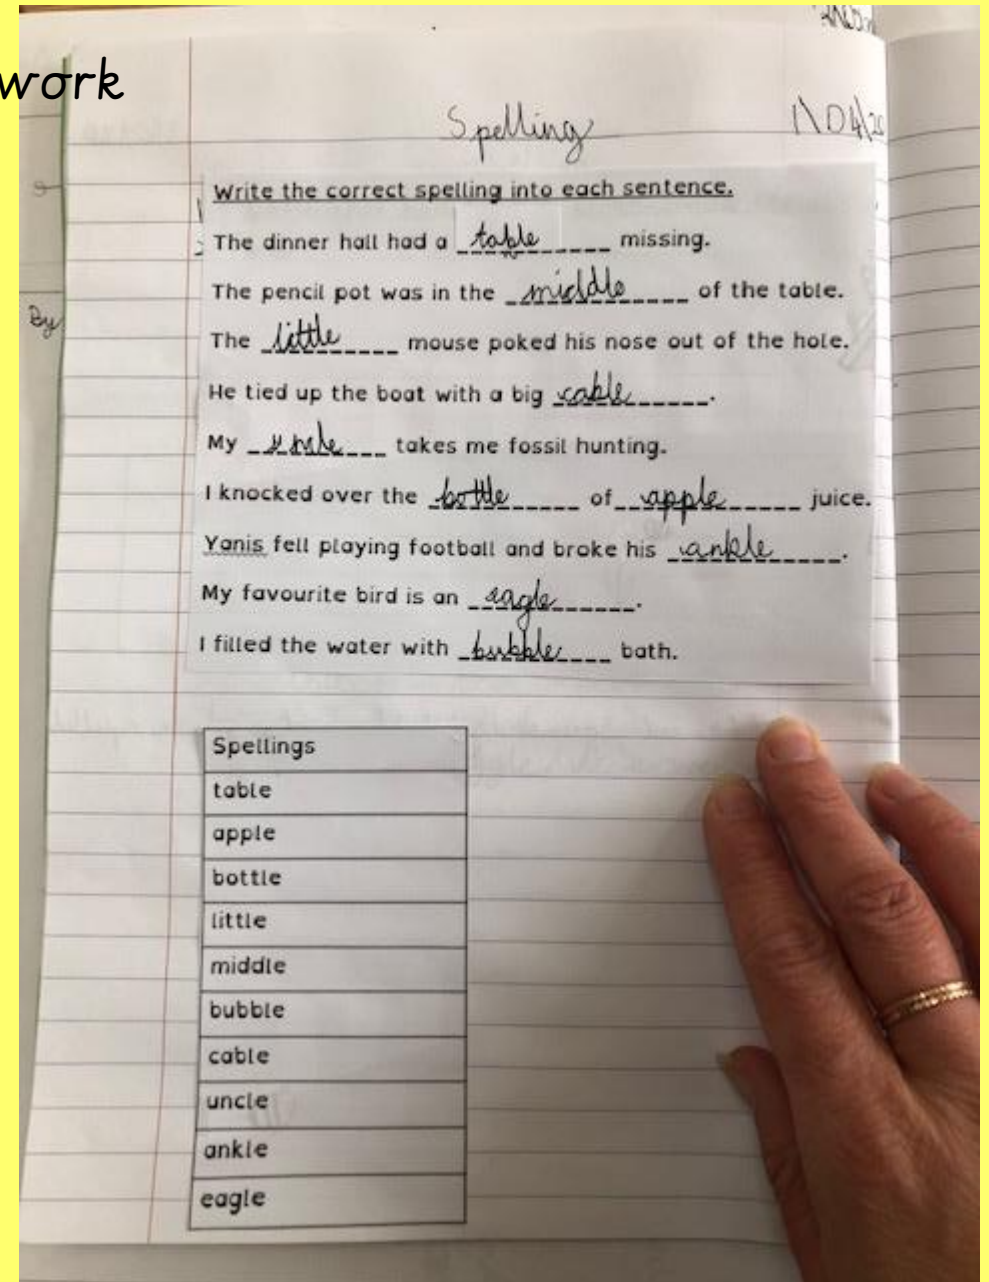 work
Spelling 1\04\20
Write the correct spelling into each sentence.
The dinner hall had a table missing.
The pencil pot was in the middle of the table.
By
The little mouse poked his nose out of the hole.
He tied up the boat with a big cable.
My takes me fossil hunting.
I knocked over the bottle of apple juice.
Yanis fell playing football and broke his ankle.
My favourite bird is an eagle.
I filled the water with bubble bath.
Spellings
table
apple
bottle
little
middle
bubble
cable
uncle
ankle
eagle